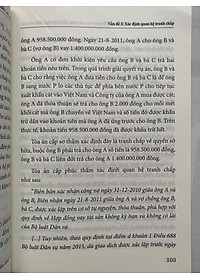 Vấn đề 3: Xác định quan hệ tranh chấp
ông A 958.500.000 đồng. Ngày 21-8-2011, ông A cho ông B và
bà C (vợ ông B) vay 1.400.000.000 đồng.
Ông A có đơn khởi kiện yêu cầu ông B và bà C trả hai
khoản tiền nêu trên. Trong quá trình giải quyết vụ án, ông B và
bà C cho rằng việc ông A đưa tiền cho ông B và bà C là để ông B
sang nước P lo thủ tục đưa mẹ đẻ phía bên nước P cho tiếp tục
hợp tác trồng cây cao su mà công ty do ông A làm chủ; tương tự,
ông A đã thỏa thuận sẽ trả công cho ông B 2.000 đồng cho mỗi
mét khối gỗ mà ông B chuyển về Việt Nam và số tiền đó được
khấu trừ vào số tiền mỗi lần ông A đã tạm ứng trước cho ông B. Trên
thực tế, khoản tiền 958.500.000 đồng đã được khấu trừ hết.
Tòa án cấp sơ thẩm xác định đây là tranh chấp về quyền sở
hữu, buộc ông B phải trả cho ông A số tiền là 958.500.000 đồng,
ông B và bà C liên đới trả cho ông A 1.400.000.000 đồng.
Tòa án cấp phúc thẩm xác định quan hệ tranh chấp
như sau:
"Biên bản xác nhận công nợ ngày 31-12-2010 giữa ông A và
ông B; Biên nhận ngày 21-8-2011 giữa ông A và vợ chồng ông B,
bà C; được xác lập trên cơ sở tự nguyện, thỏa thuận, phù hợp với
quy định về Hợp đồng vay tài sản không kỳ hạn và không có lãi
của Bộ luật dân sự.
[...] Tuy nhiên, theo quy định tại điểm d khoản 1 Điều 688
Bộ luật Dân sự năm 2015, dù giao dịch được xác lập trước ngày
103